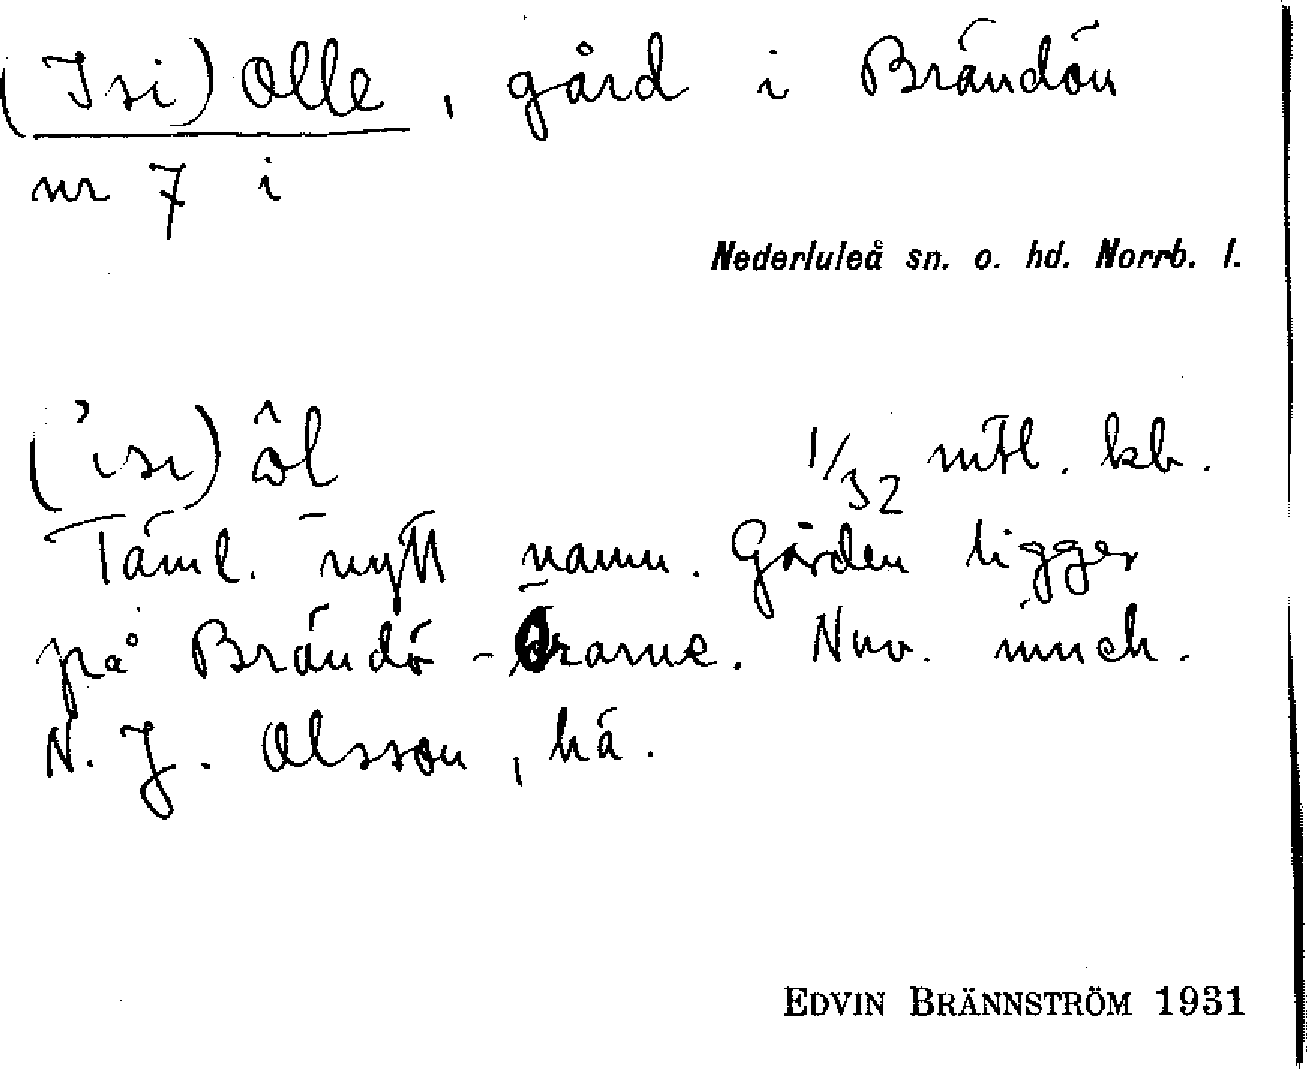 (Isi) Olle, gård i Brändön
nr 7 i
Nederluleå sn. o. hd. Norrb. l.
(ˀisı) ôl 1/32 mtl. kb.
Täml. nytt namn. Gården ligger
på Brändö-Örarne. Nuv. inneh.
N. J. Olsson, hä.
EDVIN BRÄNNSTRÖM 1931